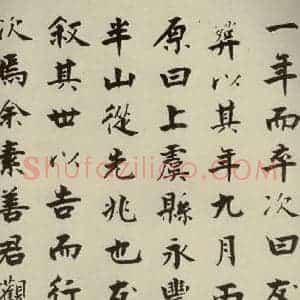 一年而卒次曰友
葬以其年九月
原曰上虞縣永豐
半山從先兆也友
叙其世以告而行
次焉余素善君觀
Shufaziliao.COM